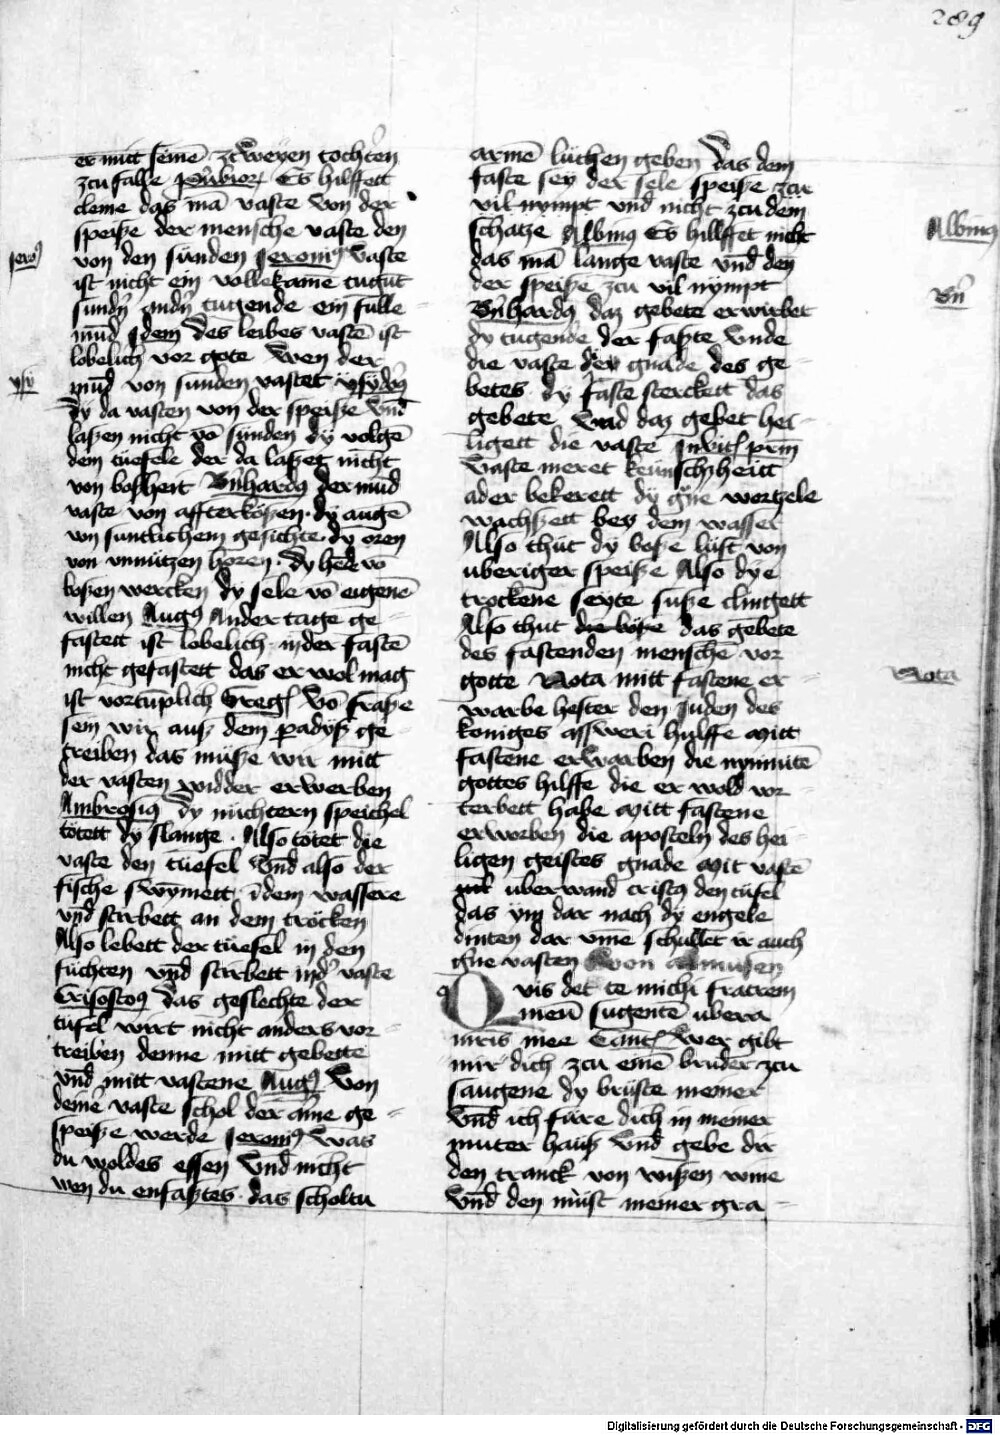 289
er mitt seinē zcweyen tochtern
zcu falle Es hilffett
cleine das mā vaste von der
speisze der mensche vaste den
Jeroꝰ
von den sunden Jeronīꝰ Vaste
ist nicht ein vollekamē tugūt
sundʼn andʼn tugende ein fulle
mūd Jdem Des leibes vastē ist
lobelich vor gote Wen der
ysy
mūd von sunden vastet ysydʼꝰ
Dy da vasten von der speisze vnd
laszen nicht vō sunden dy volgē
dem tuefele der da laszet nicht
von boszheit Bʼnhardꝰ der mūd
vaste von affterkoszen dy augē
von suntlichem gesichte dy oren
von vnnützen horen dy hēde vō
boszen wercken dy sele vō eigenē
willen Augꝰ Ander tage ge-
fastett ist lobelich in der fastē
nicht gefastett das er wol mag
ist vortūplich Greg Vō frasze
sein wir ausz dem padysz ge-
treiben das musze wir mitt
der vasten widder erwerben
Ambrosiꝰ Dy nüchtern speichel
totett dy slange Also totet die
vaste den tüefel vnd also der
fische swymett ī dem wassere
vnd stirbett an dem tröcken
Also lebett der tüefel in den
füchten vnd stirbett in dʼ vaste
Crisostoꝰ das geslechte der
tüfel wirt nicht anders vor-
treiben denne mitt gebette
vnd mitt vastene Augꝰ Von
deinē vaste schol der arme ge-
speisze werde Jeronīꝰ Was
du woldes essen vnd nicht
wen du enfasztes das scholtu
armē lüthen geben Das dem
faste sey der sele speisze zcu
vil nympt vnd nicht zcu dem
Albinꝰ
schatze Albinꝰ Es hillffet nicht
das mā lange vaste vnd den
der speisze zcu vil nympt
Bʼn
Bʼnhardꝰ daz gebete erwirbet
dy tugende der faszte vnde
die vaste dy gnade des ge-
betes dy faste sterckett das
gebete vnd daz gebet hei-
ligett die vaste
Vaste meret keuschheitt
ader bekerett dy gʼne wortzele
wachszett bey dem wasser
Also thut dy bosze lüst von
uberiger speisze Also dye
trockene seyte susze clingett
Also thut das gebete
des fastenden mensche vor
Nota
gotte Nota mitt fastene er-
warbe hester den Juden des
koniges assweri hulffe Mitt
fastene erwarben die nynnutē
gottes hilffe die er wold vor-
terbett habe Mitt fastene
erworben die aposteln des hei-
ligen geistes gnade Mit vastē
uberwand cristꝰ den tüfel
das ym dar nach dy engele
dinten dar vme schullet ir auch
gʼne vasten Von almusen
Quis det te michi fratrem
meū sugentē ubera
mris mee Cant Wer gibt
mir dich zcu einē bruder zcu
saugene dy brüste meiner
vnd ich füre dich in meiner
muter hausz vnd gebe dir
den tranck von wiszen wine
vnd den müst meiner gra-
Digitalisierung gefördert durch die Deutsche Forschungsgemeinschaft - DFG